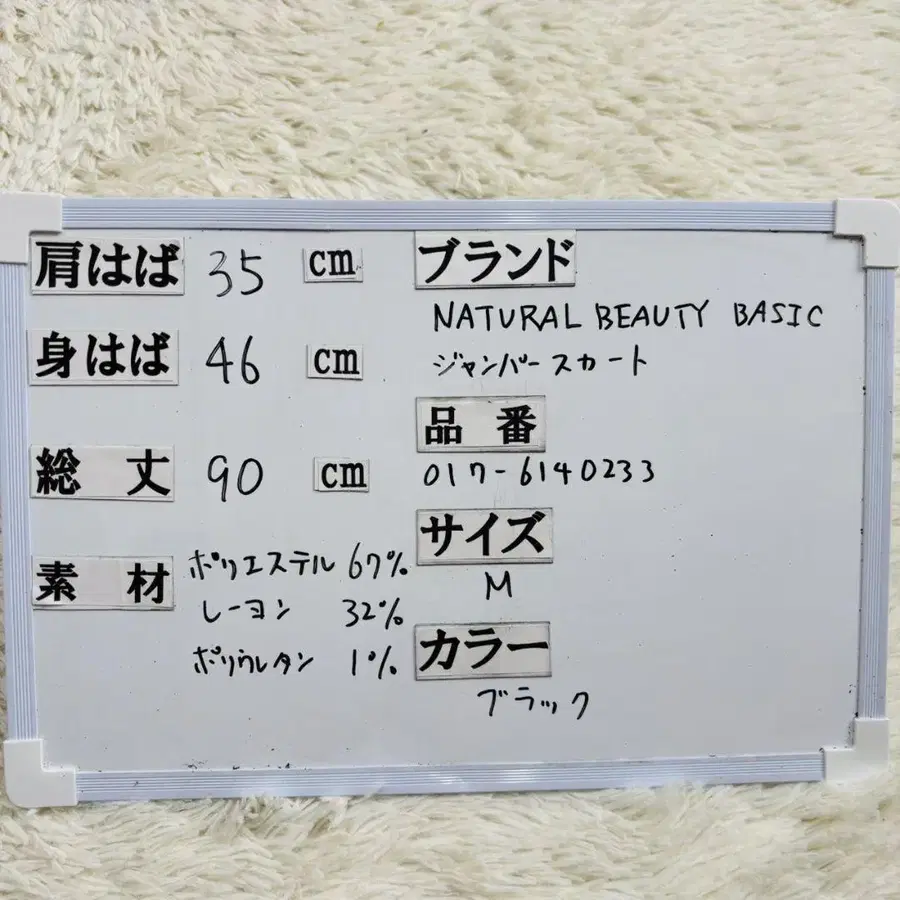 肩はば 35 cm
身はば 46 cm
総丈 90 cm
素材 ポリエステル 67%
レーヨン 32%
ポリウレタン 1%
ブランド
NATURAL BEAUTY BASIC
ジャンパースカート
品番
017-6140233
サイズ
M
カラー
ブラック